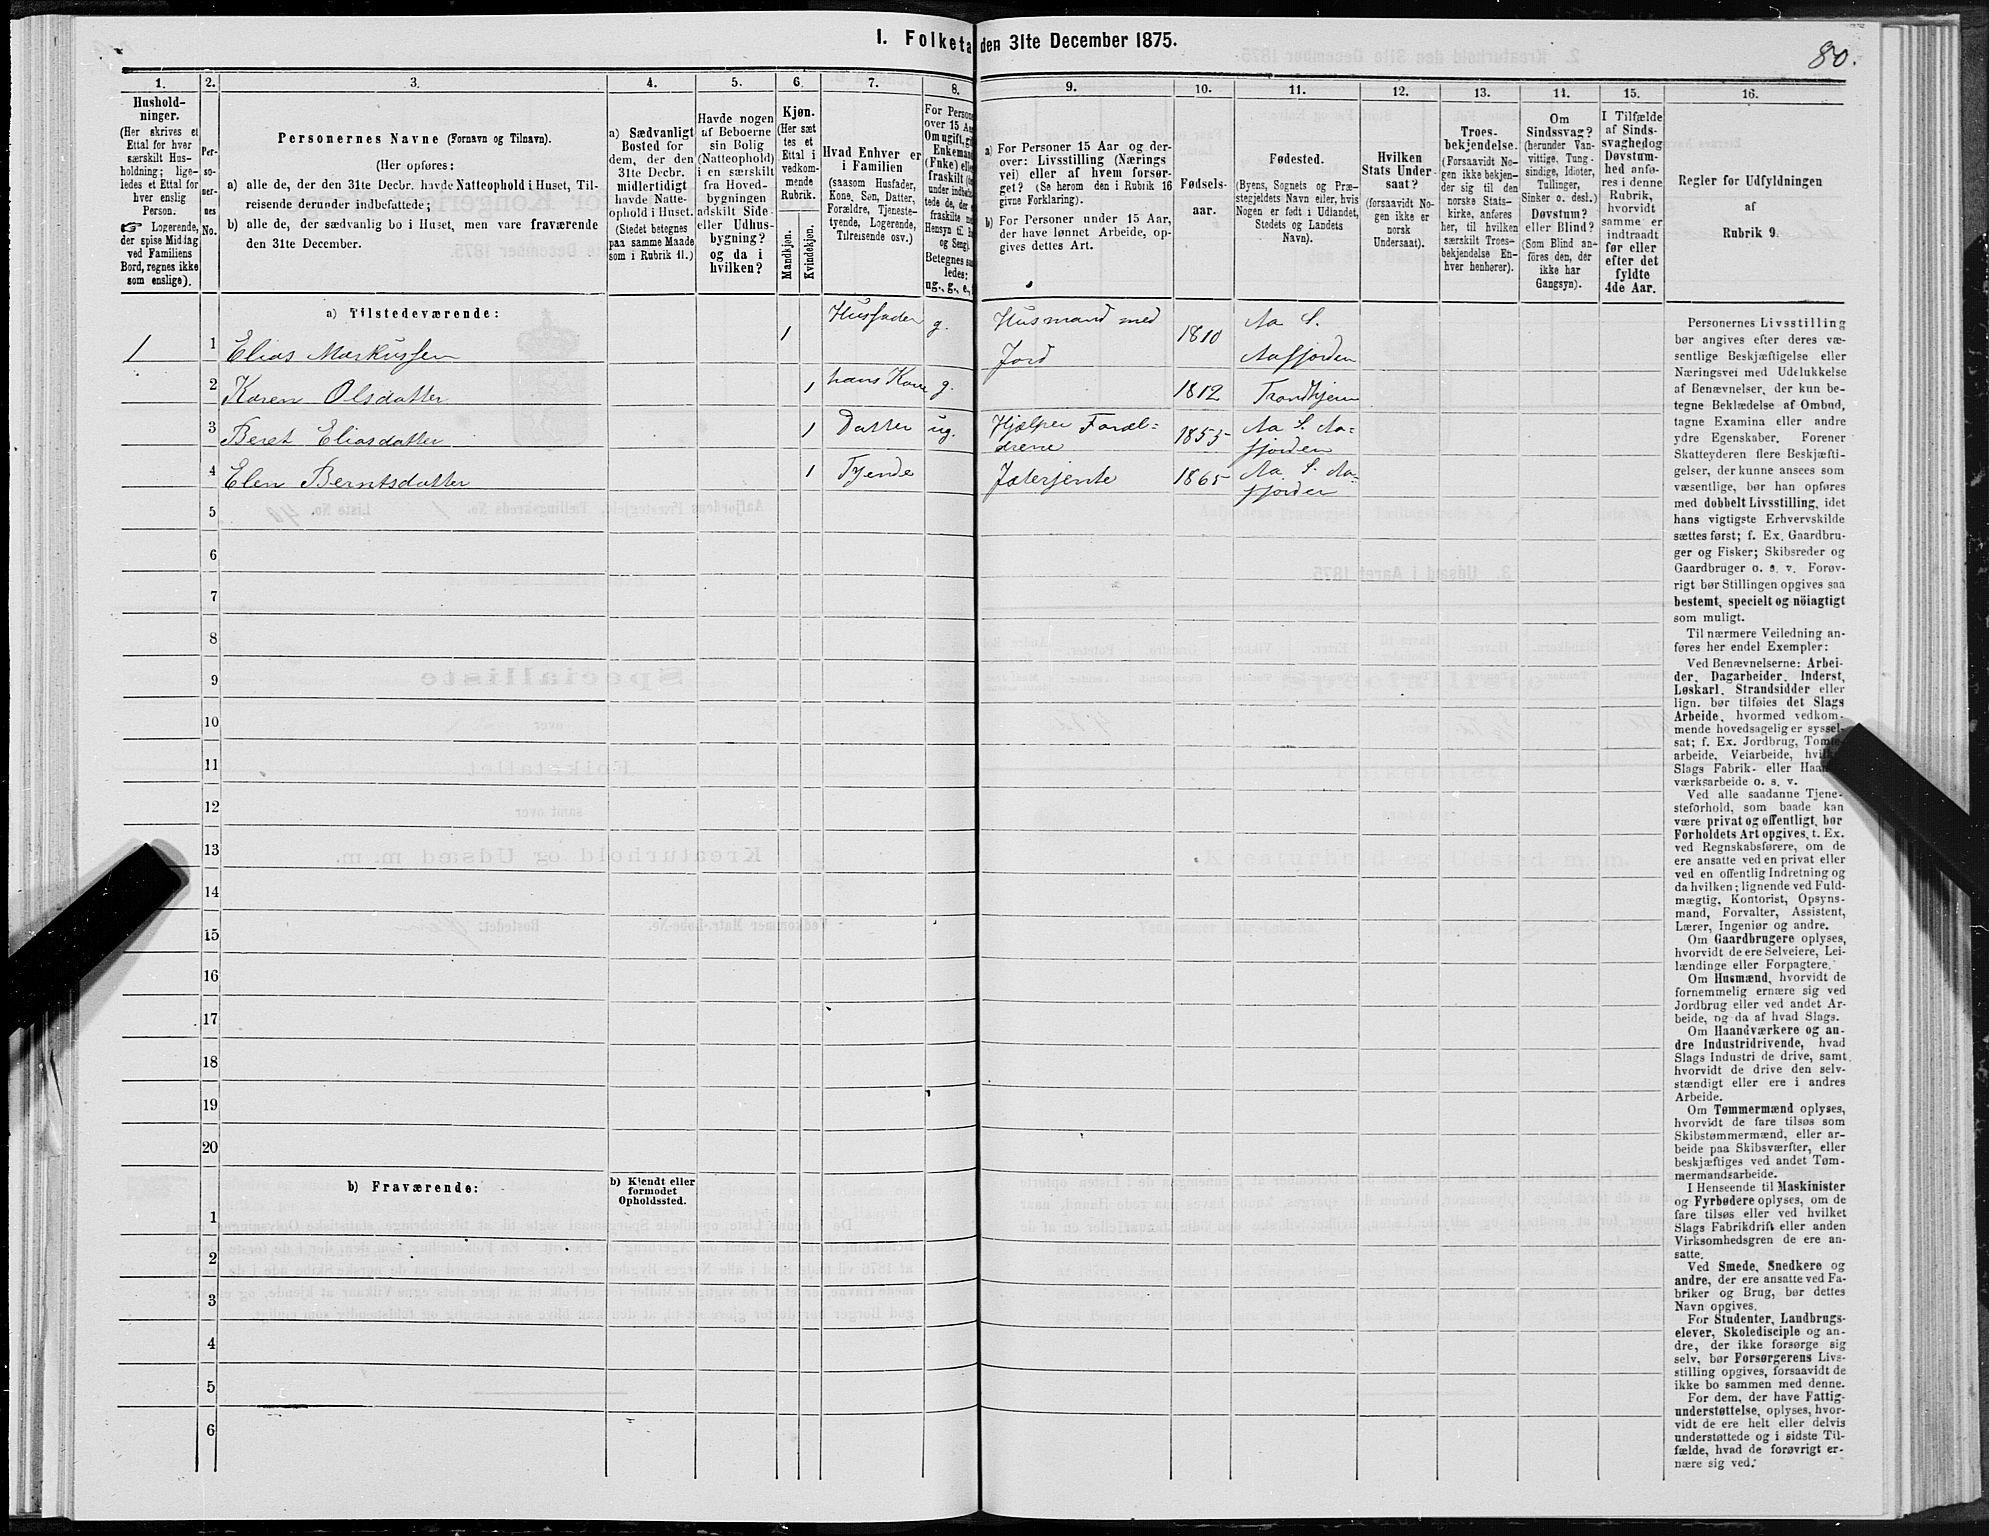 I. Folketa den 31te December 1875.
80.
1.
Hushold-
ninger.
(Her skrives et
Ettal for hver
særskilt Hus-
holdning; lige-
ledes et Ettal for
hver enslig
Person.
Logerende,
der spise Middag
ved Familiens
Bord, regnes ikke
som enslige).
2.
Per-
so-
ner-
nes
No.
3.
Personernes Navne (Fornavn og Tilnavn).
(Her opføres:
a) alle de, der den 31te Decbr. havde Natteophold i Huset, Til-
reisende derunder indbefattede;
b) alle de, der sædvanlig bo i Huset, men vare fraværende
den 31te December.
4.
a) Sædvanligt
Bosted for
dem, der den
31te Decbr.
midlertidigt
havde Natte-
ophold i Huset.
(Stedet betegnes
paa samme Maade
som i Rubrik 11.)
5.
Havde nogen
af Beboerne
sin Bolig
(Natteophold)
i en særskilt
fra Hoved-
bygningen
adskilt Side-
eller Udhus-
bygning?
og da i
hvilken?
6.
Kjøn.
(Her sæt
tes et
Ettal i
vedkom-
mende
Rubrik.
Mandkjøn.
Kvindekjøn.
7.
Hvad Enhver er
i Familien
(saasom Husfader,
Kone, Søn, Datter,
Forældre, Tjeneste-
tyende, Logerende,
Tilreisende osv.)
8.
For Person
over 15 Aa
Om ugift, gi
Enkeman
(Enke) elle
fraskilt (
under indbe
tede de, der
fraskilte m
Hensyn til B
og Seng).
Betegnes sa
ledes:
ug., g., e.,
9.
a) For Personer 15 Aar og der-
over: Livsstilling (Nærings
vei) eller af hvem forsør-
get? (Se herom den i Rubrik 16
givne Forklaring).
b) For Personer under 15 Aar,
der have lønnet Arbeide, op-
gives dettes Art.
10.
Fødsels-
aar.
11.
Fødested.
(Byens, Sognets og Præ-
stegjeldets Navn eller, hvis
Nogen er født i Udlandet,
Stedets og Landets
Navn).
12.
Hvilken
Stats Under-
saat?
(forsaavidt No-
gen ikke er
norsk
Undersaat).
13.
Troes-
bekjendelse.
(Forsaavidt No-
gen ikke bekjen-
der sig til den
norske Stats-
kirke, anføres
her, til hvilken
særskilt Troes-
bekjendelse En-
hver henhører).
14.
Om
Sindssvag?
(herunder Van-
vittige, Tung-
sindige, Idioter,
Tullinger,
Sinker o. desl.)
Døvstum?
eller Blind?
(Som Blind an-
føres den, der
ikke har
Gangsyn).
15.
I Tilfælde
af Sinds-
svaghed og
Døvstum-
hed anfø-
res i denne
Rubrik,
hvorvidt
samme er
indtraadt
før eller
efter det
fyldte
4de Aar.
16.
Regler for Udfyldningen
af
Rubrik 9.
a) Tilstedeværende:
1 1 Elias Markussen 1 Husfader g. Husmand med Jord 1810 Aa S. Aafjorden
2 Karen Olsdatter 1 hans Kone g. 1812 Trondhjem
3 Beret Eliasdatter 1 Datter ug. Hjælper Foræl-drene 1855 Aa S. Aa-fjorden
4 Elen Berntsdatter 1 Tyende Jæterjente 1865 Aa S. Aa-fjorden
5
6
7
8
9
10
11
12
13
14
15
16
17
18
19
20
b) Fraværende:
b) Kjendt eller
formodet
Opholdssted.
1
2
3
4
5
6
Personernes Livsstilling
bør angives efter deres væ-
sentlige Beskjæftigelse eller
Næringsvei med Udelukkelse
af Benævnelser, der kun be-
tegne Beklædelse af Ombud,
tagne Examina eller andre
ydre Egenskaber. Forener
Skatteyderen flere Beskjæfti-
gelser, der kunne ansees som
væsentlige, bør han opføres
med dobbelt Livsstilling, idet
hans vigtigste Erhvervskilde
sættes først; f. Ex. Gaardbru-
ger og Fisker; Skibsreder og
Gaardbruger o. s. v. Forøv-
rigt bør Stillingen opgives saa
bestemt, specielt og nöiagtigt
som muligt.
Til nærmere Veiledning an-
føres her endel Exempler:
Ved Benævnelserne: Arbei-
der, Dagarbeider, Inderst,
Løskarl, Strandsidder eller
lign. bør tilføies det Slags
Arbeide, hvormed vedkom-
mende hovedsagelig er syssel-
sat; f. Ex. Jordbrug, Tomte-
arbeide, Veiarbeide, hvilket
Slags Fabrik- eller Haand-
værksarbeide o. s. v.
Ved alle saadanne Tjene-
steforhold, som baade kan
være privat og offentligt, bør
Forholdets Art opgives, t. Ex.
ved Regnskabsførere, om de
ere ansatte ved en privat eller
ved en offentlig Indretning og
da hvilken; lignende ved Fuld-
mægtig, Kontorist, Opsyns-
mand, Forvalter, Assistent,
Lærer, Ingeniør og andre.
Om Gaardbrugere oplyses,
hvorvidt de ere Selveiere, Lei-
lændinge eller Forpagtere.
Om Husmænd, hvorvidt de
fornemmelig ernære sig ved
Jordbrug eller ved andet Ar-
beide, og da af hvad Slags.
Om Haandværkere og an-
dre Industridrivende, hvad
Slags Industri de drive, samt
hvorvidt de drive den selv-
stændigt eller ere i andres
Arbeide.
Om Tømmermænd oplyses,
hvorvidt de fare tilsøs som
Skibstømmermænd, eller ar-
beide paa Skibsværfter, eller
beskjæftiges ved andet Tøm-
mermandsarbeide.
I Henseende til Maskinister
og Fyrbødere oplyses, om de
fare tilsøs eller ved hvilket
Slags Fabrikdrift eller anden
Virksomhedsgren de ere an-
satte.
Ved Smede, Snedkere og
andre, der ere ansatte ved Fa-
briker og Brug, bør dettes
Navn opgives.
For Studenter, Landbrugs-
elever, Skoledisciple og an-
dre, der ikke forsørge sig
selv, bør Forsørgerens Livs-
stilling opgives, forsaavidt de
ikke bo sammen med denne.
For dem, der have Fattig-
understøttelse, oplyses, hvor-
vidt de ere helt eller delvis
understøttede og i sidste Til-
fælde, hvad de forøvrigt er-
nære sig ved.